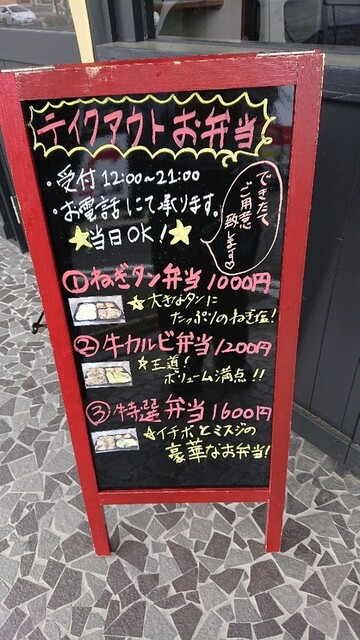 テイクアウトお弁当
・受付12:00~21:00
・お電話にて承ります。
★当日OK!★
できたて
ご用意
致します♡
①ねぎタン弁当1000円
☆大きなタンに
たっぷりのねぎ塩!
②牛カルビ弁当1200円
☆王道!
ボリューム満点!!
③特選弁当1600円
☆イチボとミスジの
豪華なお弁当!